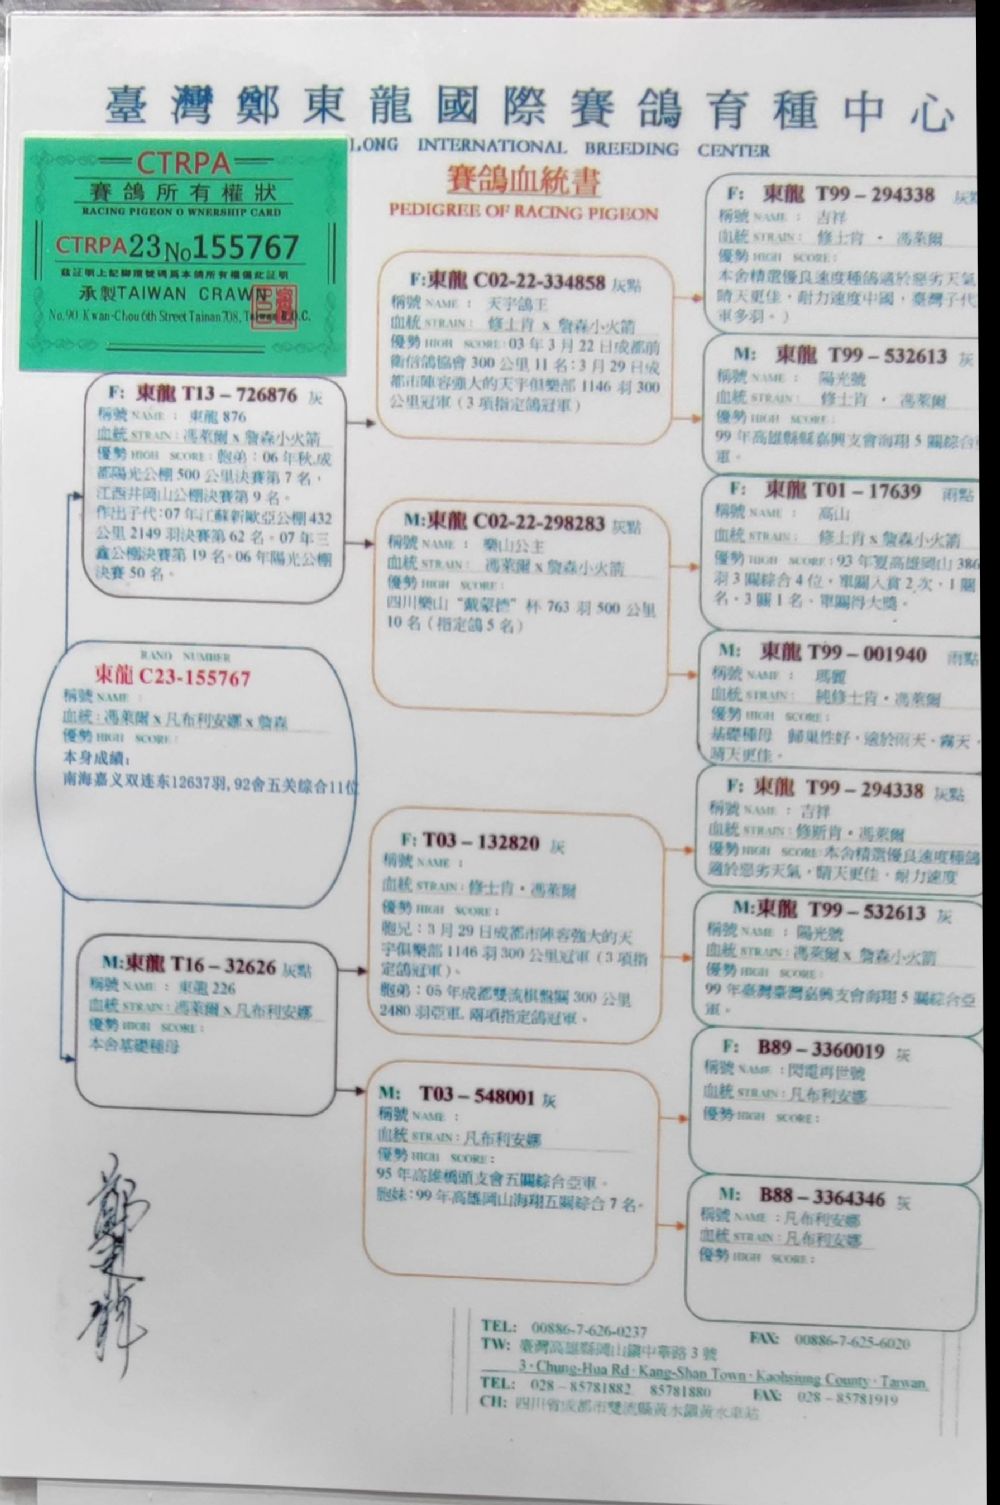 臺灣鄭東龍國際賽鴿育種中心
LONG INTERNATIONAL BREEDING CENTER
賽鴿血統書
PEDIGREE OF RACING PIGEON
CTRPA
賽鴿所有權狀
RACING PIGEON O WNERSHIP CARD
CTRPA23No155767
茲証明上記腳環號碼爲本鴿所有權備此証明
承製TAIWAN CRAWN
No.90 Kwan-Chou 6th Street Tainan 708, Taiwan R.O.C.
F: 東龍 T13－726876 灰
稱號 NAME : 東龍 876
血統 STRAIN : 馮萊爾 x 詹森小火箭
優勢 HIGH SCORE : 胞弟：06 年秋.成
都陽光公棚 500 公里決賽第 7 名，
江西井岡山公棚決賽第 9 名。
作出子代:07 年江蘇新歐亞公棚 432
公里 2149 羽決賽第 62 名。07 年三
鑫公棚決賽第 19 名。06 年陽光公棚
決賽 50 名。
RAND NUMBER
東龍 C23-155767
稱號 NAME :
血統 : 馮萊爾 x 凡布利安娜 x 詹森
優勢 HIGH SCORE :
本身成績:
南海嘉义双连东12637羽, 92會五关綜合11位
M:東龍 T16－32626 灰點
稱號 NAME : 東龍 226
血統 STRAIN : 馮萊爾 x 凡布利安娜
優勢 HIGH SCORE :
本舍基礎種母
F:東龍 C02-22-334858 灰點
稱號 NAME : 天宇鴿王
血統 STRAIN : 修士肯 x 詹森小火箭
優勢 HIGH SCORE : 03 年 3 月 22 日成都前
衛信鴿協會 300 公里 11 名；3 月 29 日成
都市陣容強大的天宇俱樂部 1146 羽 300
公里冠軍（3 項指定鴿冠軍）
M:東龍 C02-22-298283 灰點
稱號 NAME : 樂山公主
血統 STRAIN : 馮萊爾 x 詹森小火箭
優勢 HIGH SCORE :
四川樂山“戴蒙德”杯 763 羽 500 公里
10 名（指定鴿 5 名）
F: T03－132820 灰
稱號 NAME :
血統 STRAIN : 修士肯・馮萊爾
優勢 HIGH SCORE :
胞兄：3 月 29 日成都市陣容強大的天
宇俱樂部 1146 羽 300 公里冠軍（3 項指
定鴿冠軍）、
胞弟：05 年成都雙流棋盤關 300 公里
2480 羽亞軍. 兩項指定鴿冠軍。
M: T03－548001 灰
稱號 NAME :
血統 STRAIN : 凡布利安娜
優勢 HIGH SCORE :
95 年高雄橋頭支會五關綜合亞軍。
胞妹：99 年高雄岡山海翔五關綜合 7 名。
F: 東龍 T99－294338 灰點
稱號 NAME : 吉祥
血統 STRAIN : 修士肯 ・ 馮萊爾
優勢 HIGH SCORE :
本舍精選優良速度種鴿適於惡劣天氣
晴天更佳，耐力速度中國，臺灣子代
軍多羽。）
M: 東龍 T99－532613 灰
稱號 NAME : 陽光號
血統 STRAIN : 修士肯 ・ 馮萊爾
優勢 HIGH SCORE :
99 年高雄縣縣嘉興支會海翔 5 關綜合
軍。
F: 東龍 T01－17639 雨點
稱號 NAME : 高山
血統 STRAIN : 修士肯 x 詹森小火箭
優勢 HIGH SCORE : 93 年夏高雄岡山 386
羽 3 關綜合 4 位，單關入賞 2 次，1 關
名，3 關 1 名。單關得大獎。
M: 東龍 T99－001940 雨點
稱號 NAME : 瑪麗
血統 STRAIN : 純修士肯・馮萊爾
優勢 HIGH SCORE :
基礎種母 歸巢性好，適於雨天、霧天，
晴天更佳。
F: 東龍 T99－294338 灰點
稱號 NAME : 吉祥
血統 STRAIN : 修斯肯・馮萊爾
優勢 HIGH SCORE : 本舍精選優良速度種鴿
適於惡劣天氣，晴天更佳，耐力速度
M:東龍 T99－532613 灰
稱號 NAME : 陽光號
血統 STRAIN : 馮萊爾 x 詹森小火箭
優勢 HIGH SCORE :
99 年臺灣臺灣嘉興支會海翔 5 關綜合亞
軍。
F: B89－3360019 灰
稱號 NAME : 閃電再世號
血統 STRAIN : 凡布利安娜
優勢 HIGH SCORE :
M: B88－3364346 灰
稱號 NAME : 凡布利安娜
血統 STRAIN : 凡布利安娜
優勢 HIGH SCORE :
鄭東龍
TEL: 00886-7-626-0237 FAX: 00886-7-625-6020
TW: 臺灣高雄縣岡山鎮中華路 3 號
3・Chung-Hua Rd・Kang-Shan Town・Kaohsiung County・Tarwan
TEL: 028－85781882 85781880 FAX: 028－85781919
CH: 四川省成都市雙流縣黃水鎮黃水車站